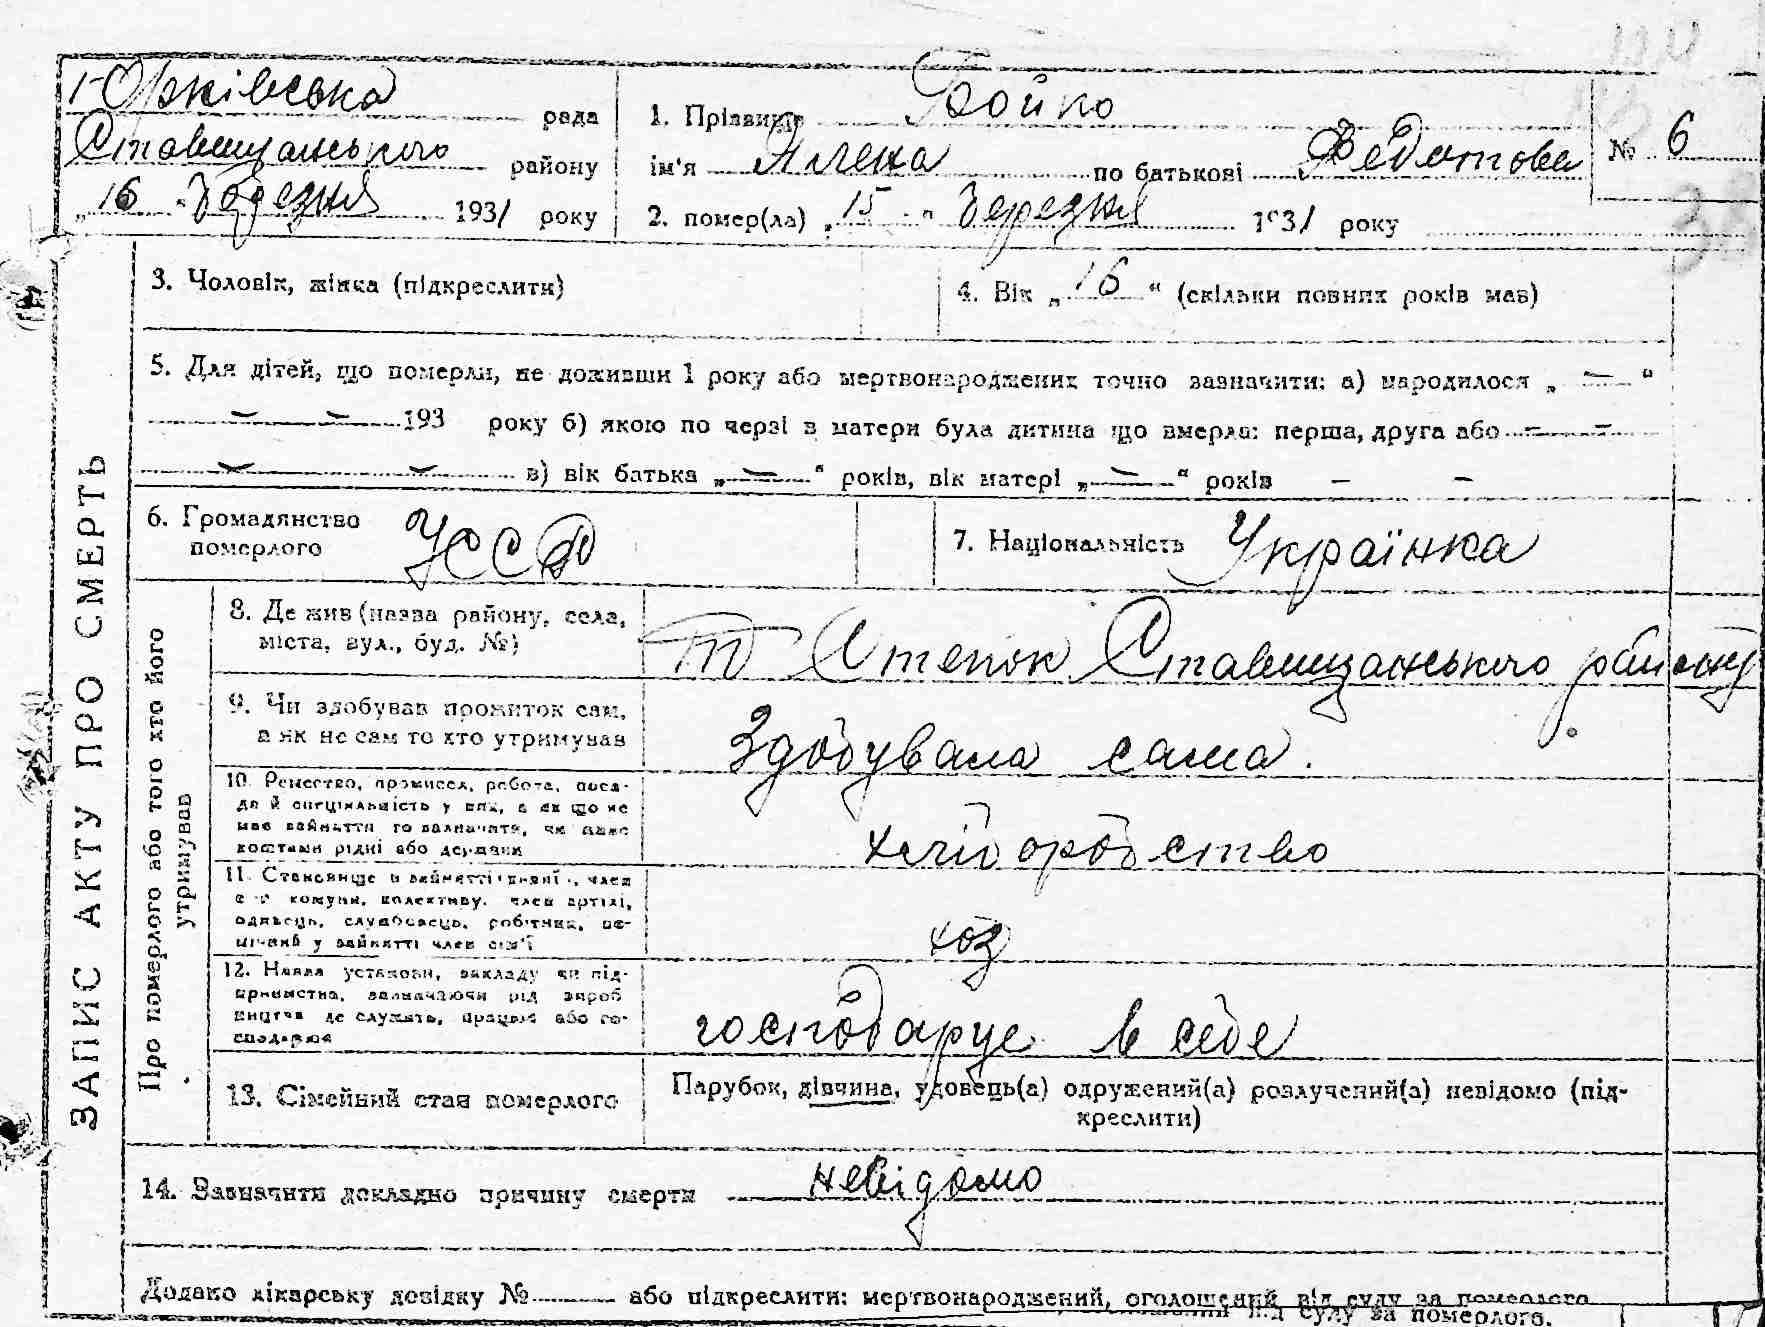 Юрківська рада
Ставищанського району
„16 " Березня 1931 року
1. Прізвище Бойко
ім'я Ялена по батькові Федотова
2. помер(ла) „15 " Березня 1931 року
№ 6
ЗАПИС АКТУ ПРО СМЕРТЬ
3. Чоловік, жінка (підкреслити)
4. Вік „ 16 “ (скільки повних років мав)
5. Для дітей, що померли, не доживши 1 року або мертвонароджених точно зазначити: а) народилося „ — “
— — 193 року б) якою по черзі в матери була дитина що вмерла: перша, друга або — —
— — в) вік батька „ — “ років, вік матері „ — “ років — —
6. Громадянство
померлого УССР
7. Національність Українка
Про померлого або того хто його
утримував
8. Де жив (назва району, села,
міста, вул., буд. №)
Степок Ставищанського району
9. Чи здобував прожиток сам,
а як не сам то хто утримував
Здобувала сама.
10. Ремество, промисел, робота, поса-
да й спеціяльність у них, а як що не
має заняття то зазначати, чи живе
коштами рідні або держави
хліборобство
11. Становище в занятті член
комуни, колективу, член артілі,
одинець, службовець, робітник, по-
мічний у занятті член сім'ї
хоз
12. Назва установи, закладу чи під-
приємства, зазначаючи рід вироб
ництва де служить, працює або го-
сподарює
господарує в себе
13. Сімейний стан померлого
Парубок, дівчина, удовець(а) одружений(а) розлучений(а) невідомо (під-
креслити)
14. Зазначити докладно причину смерти невідомо
Додано лікарську довідку № або підкреслити: мертвонароджений, оголошений від суду за померлого
від суду за померлого.